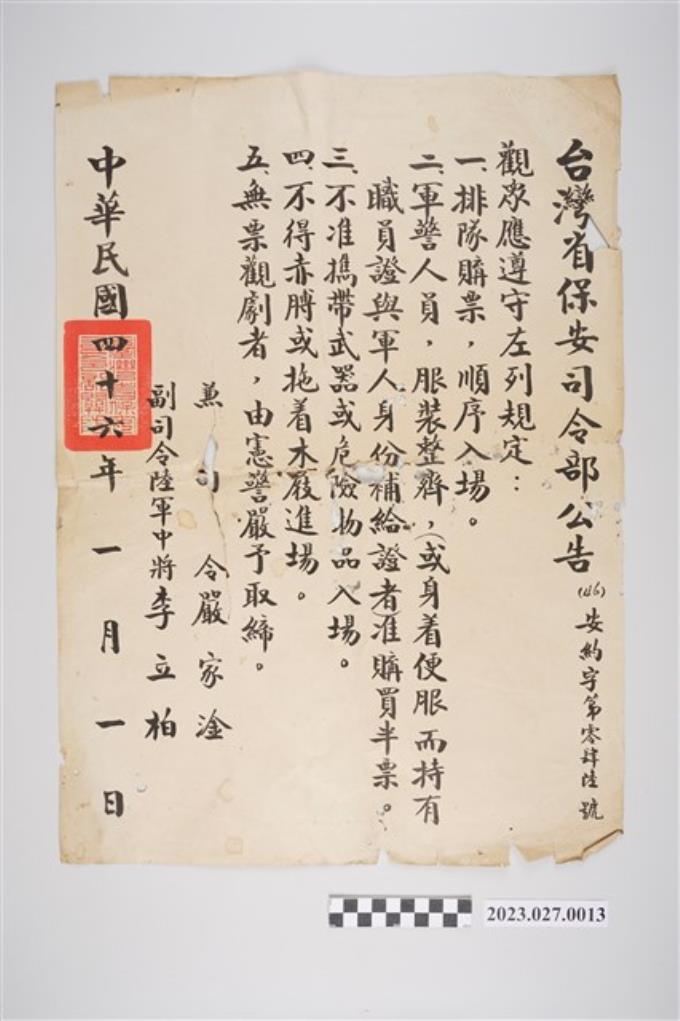 台灣省保安司令部公告
(46)安約字第零肆陸號
觀眾應遵守左列規定：
一、排隊購票，順序入場。
二、軍警人員，服裝整齊，（或身着便服而持有
職員證與軍人身份補給證者）准購買半票。
三、不准攜帶武器或危險物品入場。
四、不得赤膊或拖着木屐進場。
五、無票觀劇者，由憲警嚴予取締。
兼司令嚴家淦
副司令陸軍中將李立柏
中華民國四十六年一月一日
2023.027.0013